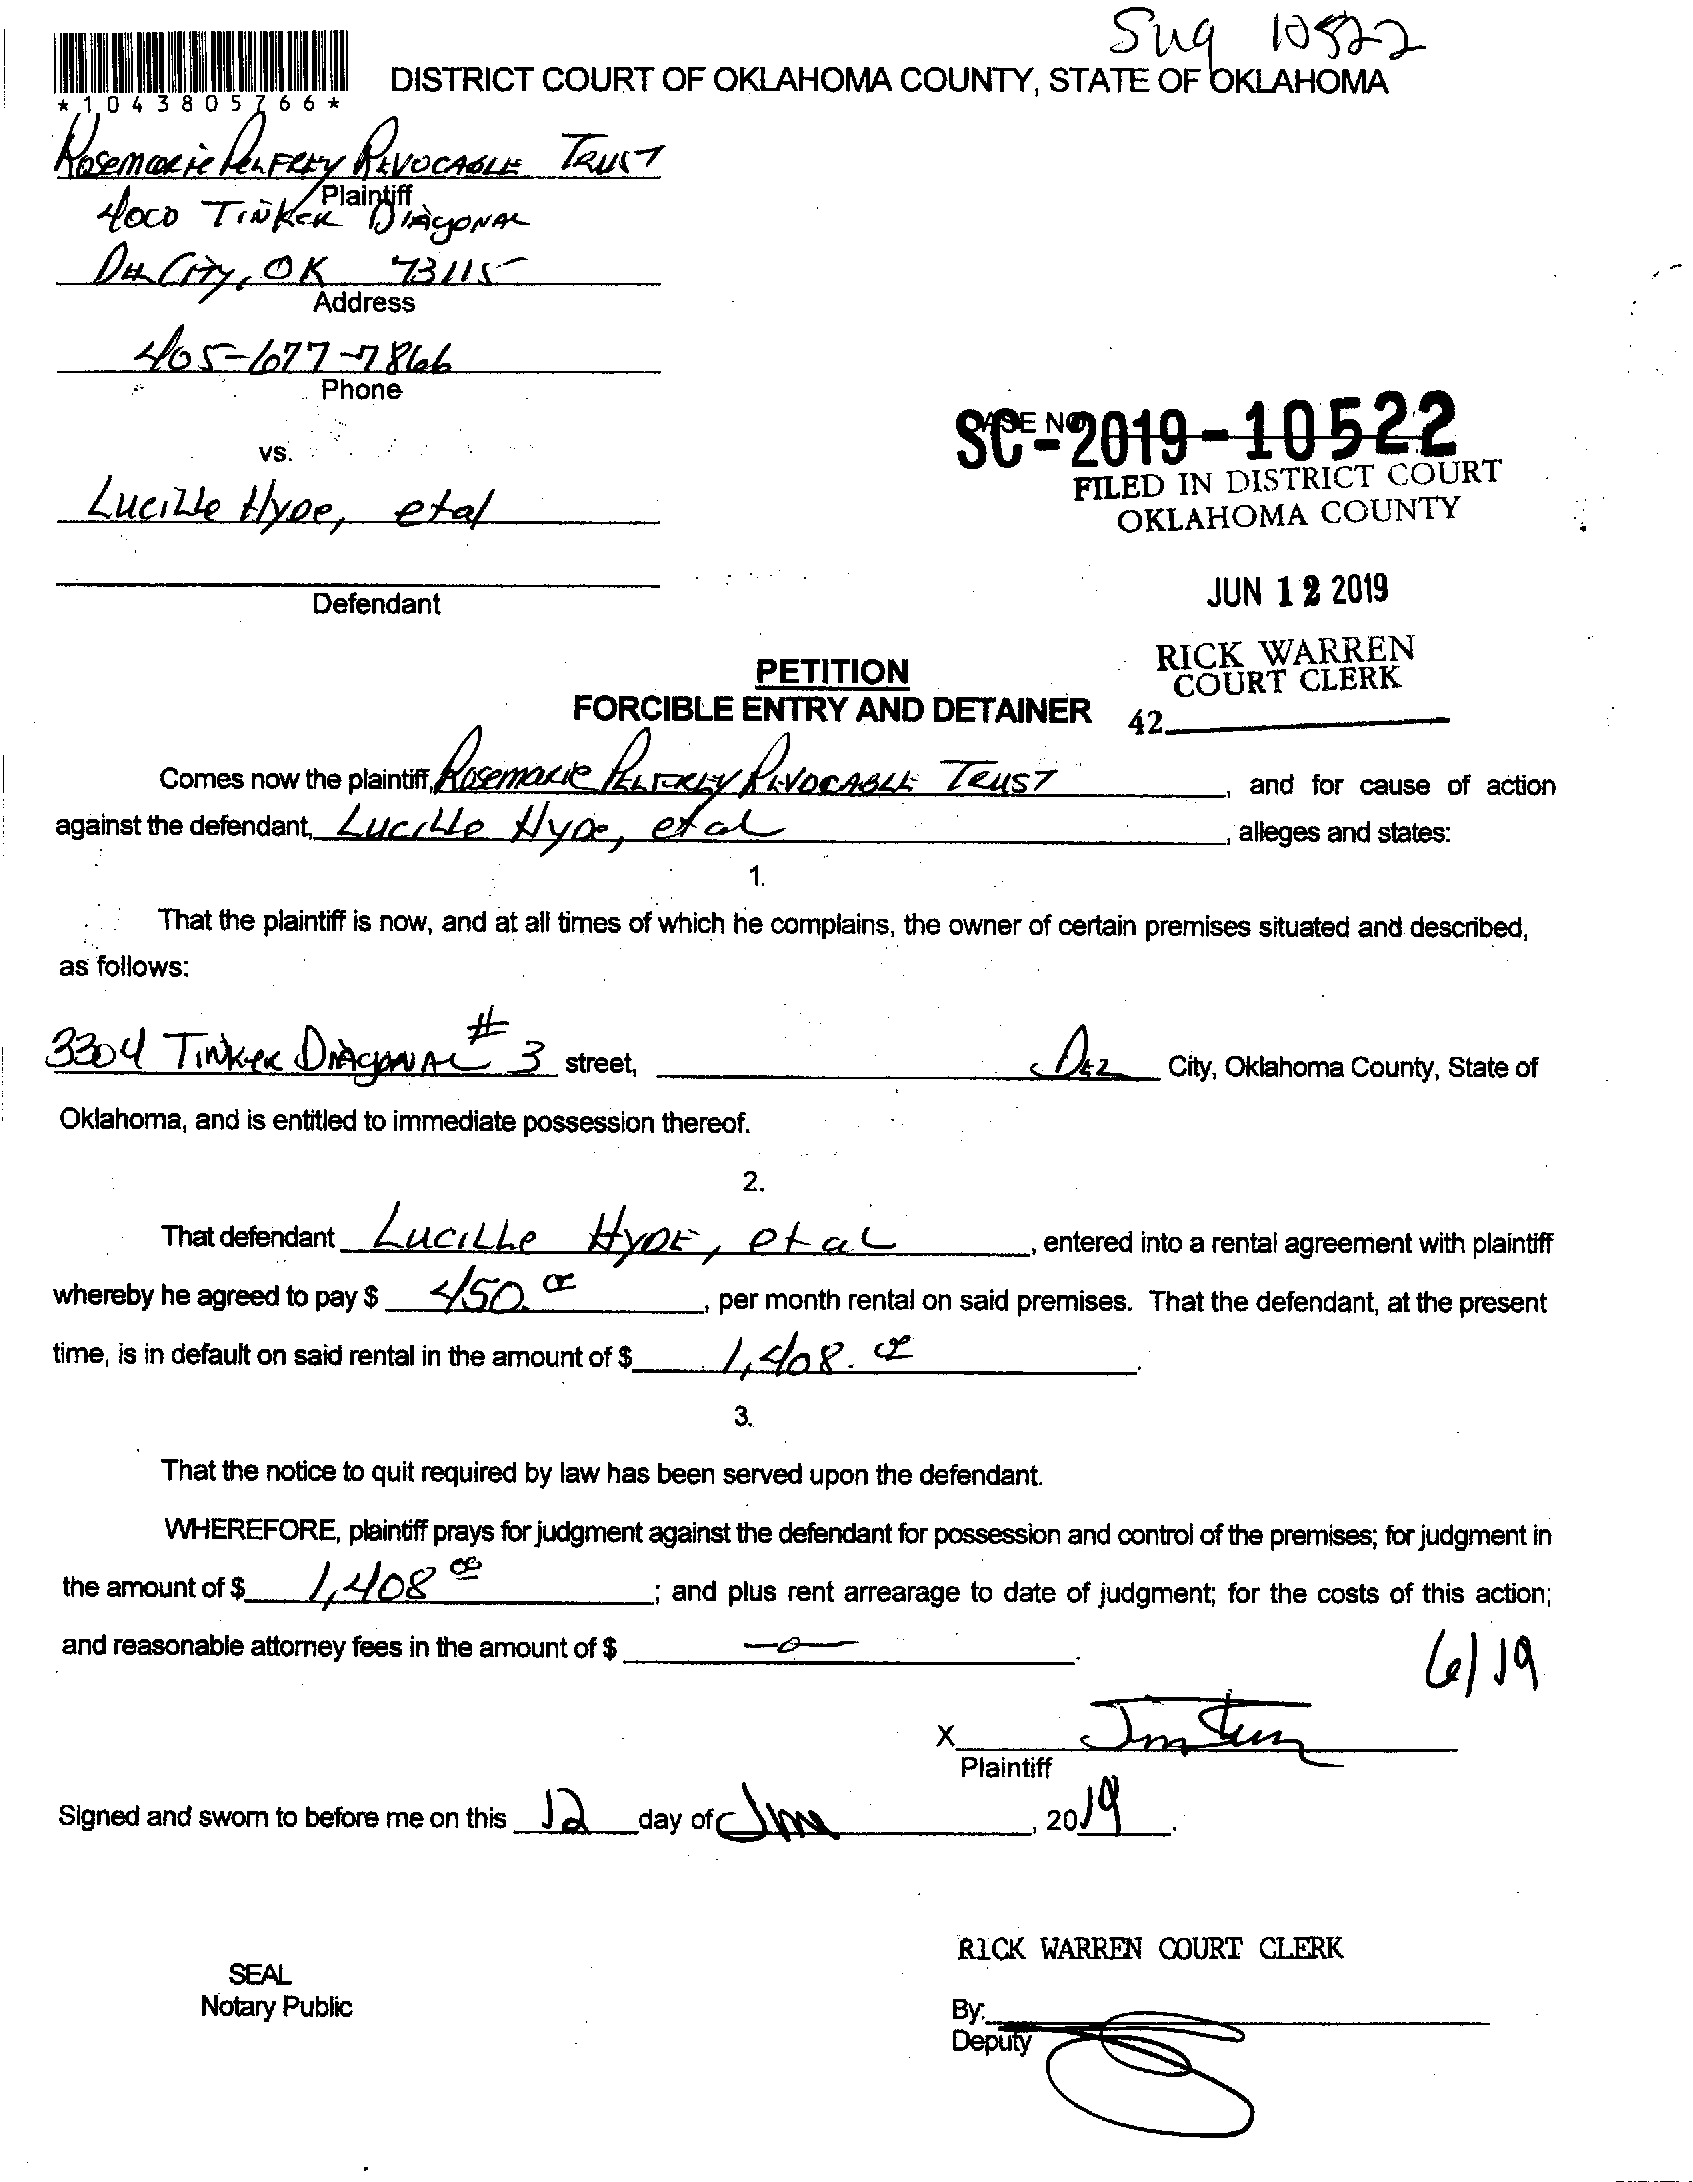 Sug 10522
DISTRICT COURT OF OKLAHOMA COUNTY, STATE OF OKLAHOMA
*1043805766*
Rosemarie Pelfrey Revocable Trust
Plaintiff
4000 Tinker Diagonal
Del City, OK 73115
Address
405-677-7866
Phone
vs.
SC-2019-10522
FILED IN DISTRICT COURT
OKLAHOMA COUNTY
Lucille Hyde, etal
JUN 12 2019
Defendant
RICK WARREN
COURT CLERK
42
PETITION
FORCIBLE ENTRY AND DETAINER
Comes now the plaintiff, Rosemarie Pelfrey Revocable Trust, and for cause of action
against the defendant, Lucille Hyde, etal, alleges and states:
1.
That the plaintiff is now, and at all times of which he complains, the owner of certain premises situated and described,
as follows:
3304 Tinker Diagonal # 3 street, Del City, Oklahoma County, State of
Oklahoma, and is entitled to immediate possession thereof.
2.
That defendant Lucille Hyde, etal, entered into a rental agreement with plaintiff
whereby he agreed to pay $ 450.00, per month rental on said premises. That the defendant, at the present
time, is in default on said rental in the amount of $ 1,408.00.
3.
That the notice to quit required by law has been served upon the defendant.
WHEREFORE, plaintiff prays for judgment against the defendant for possession and control of the premises; for judgment in
the amount of $ 1,408 00; and plus rent arrearage to date of judgment; for the costs of this action;
and reasonable attorney fees in the amount of $ -0-.
6/19
X
Plaintiff
Signed and sworn to before me on this 12 day of June, 2019.
RICK WARREN COURT CLERK
SEAL
Notary Public
By:
Deputy